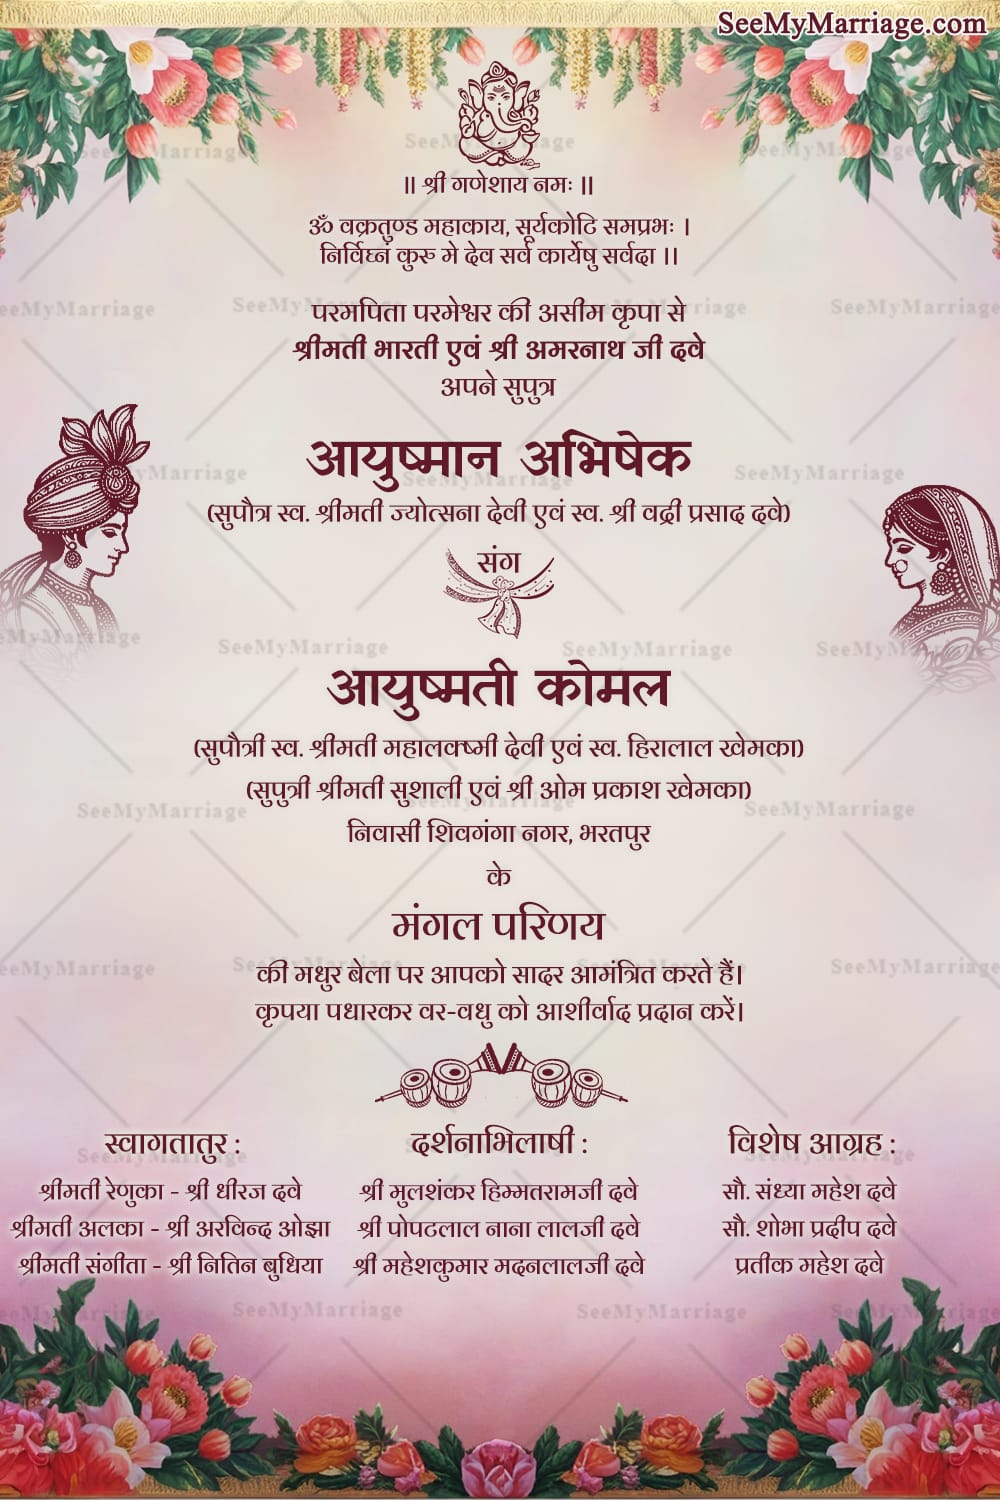 SeeMyMarriage.com
॥ श्री गणेशाय नमः ॥
ॐ वक्रतुण्ड महाकाय, सूर्यकोटि समप्रभः ।
निर्विघ्नं कुरु मे देव सर्व कार्येषु सर्वदा ।।
परमपिता परमेश्वर की असीम कृपा से
श्रीमती भारती एवं श्री अमरनाथ जी दवे
अपने सुपुत्र
आयुष्मान अभिषेक
(सुपौत्र स्व. श्रीमती ज्योत्सना देवी एवं स्व. श्री वद्री प्रसाद दवे)
संग
आयुष्मती कोमल
(सुपौत्री स्व. श्रीमती महालक्ष्मी देवी एवं स्व. हिरालाल खेमका)
(सुपुत्री श्रीमती सुशाली एवं श्री ओम प्रकाश खेमका)
निवासी शिवगंगा नगर, भरतपुर
के
मंगल परिणय
की मधुर बेला पर आपको सादर आमंत्रित करते हैं।
कृपया पधारकर वर-वधु को आशीर्वाद प्रदान करें।
स्वागतातुर :
श्रीमती रेणुका - श्री धीरज दवे
श्रीमती अलका - श्री अरविन्द ओझा
श्रीमती संगीता - श्री नितिन बुधिया
दर्शनाभिलाषी :
श्री मुलशंकर हिम्मतरामजी दवे
श्री पोपटलाल नाना लालजी दवे
श्री महेशकुमार मदनलालजी दवे
विशेष आग्रह :
सौ. संध्या महेश दवे
सौ. शोभा प्रदीप दवे
प्रतीक महेश दवे